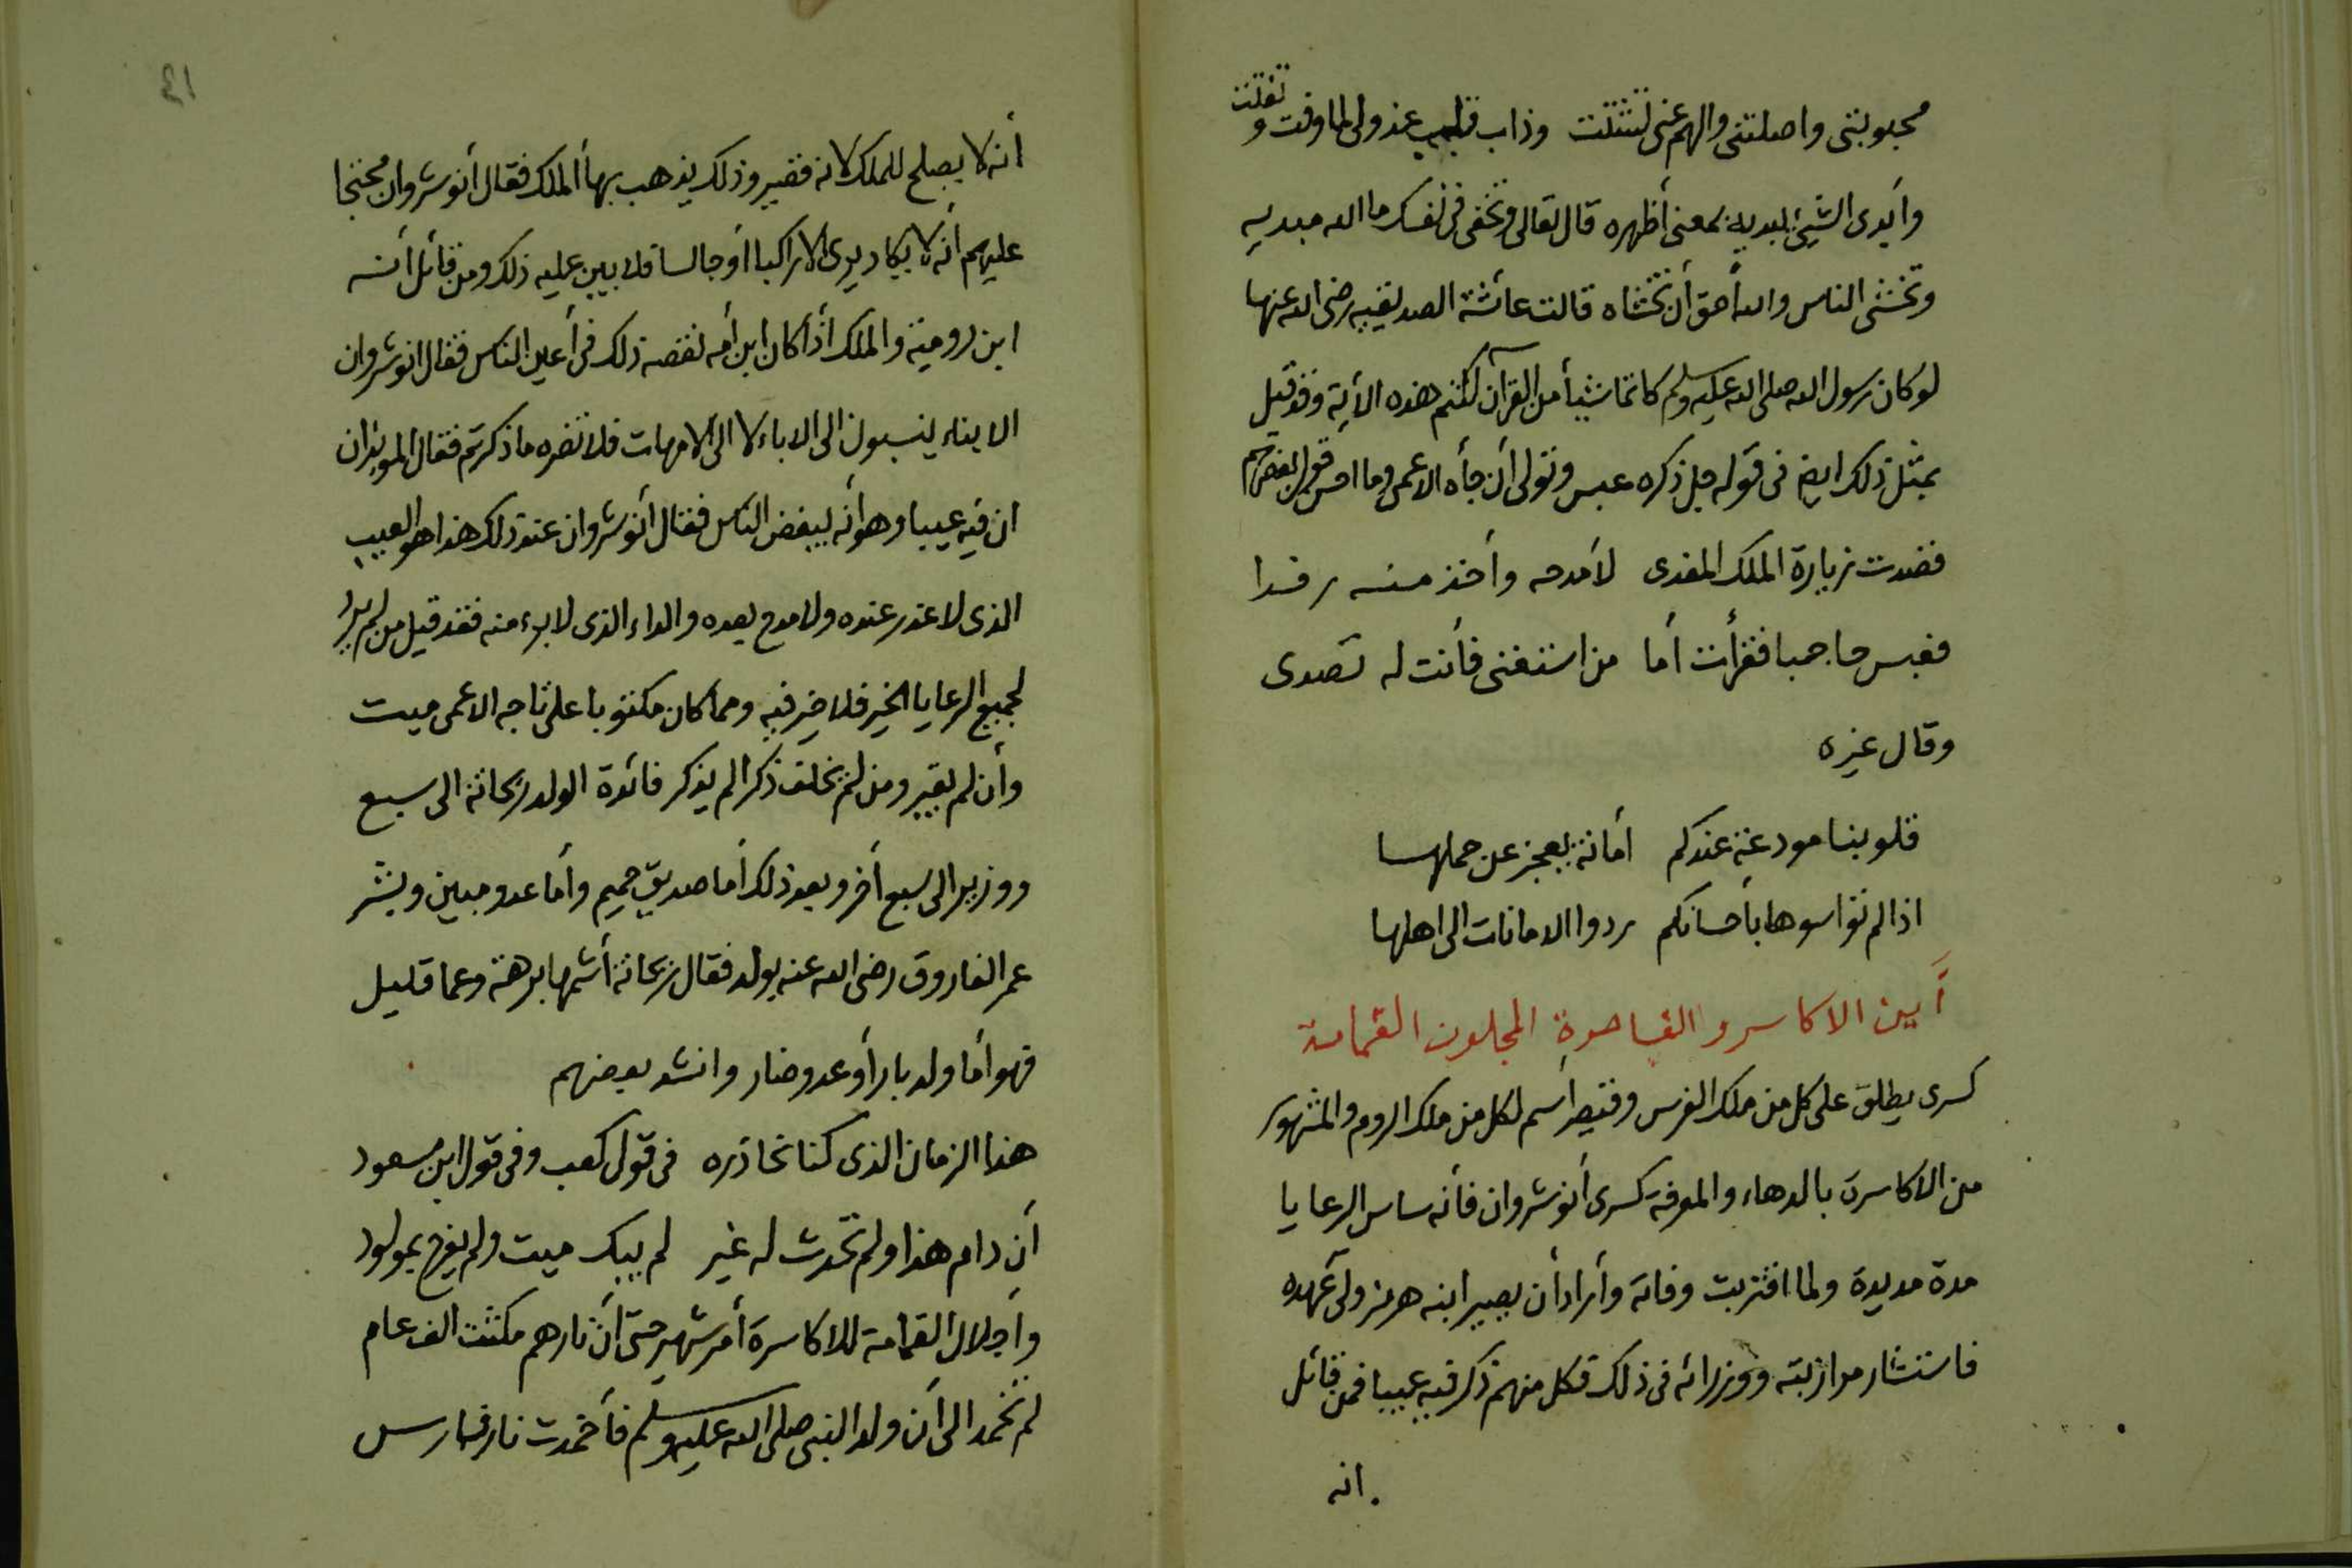 محبوبتى واصلتنى والهم عنى تشتت وذاب قلب عذولى لما وفت و تفلتت
وأبدى الشيئ يبديه بمعنى أظهره قال تعالى وتخفى فى نفسك ما الله مبديه
وتخشى الناس والله أحق أن تخشاه قالت عائشة الصديقيه رضى الله عنها
لو كان رسول الله صلى الله عليه وسلم كاتما شيأ من القرآن لكتم هذه الأية وقد قيل
بمثل ذلك ايضا فى قوله جل ذكره عبس وتولى أن جأه الاعمى وما احسن قول بعضهم
قصدت زيارة الملك المفدى لأمدحه وأخذ منه رفدا
فعبس حاجبا فقرأت أما من استغنى فأنت له تصدى
وقال غيره
قلوبنا مودعة عندكم أمانة يعجز عن حملها
اذا لم تواسوها بأحسانكم ردوا الامانات الى اهلها
أين الاكاسر والقياصرة المجلون القمامة
كسرى يطلق على كل من ملك الفرس وقيصر أسم لكل من ملك الروم والمشهور
من الاكاسرة بالدهاء والمعرفة كسرى أنوشروان فأنه ساس الرعايا
مدة مديدة ولما اقتربت وفاته وأراد أن يصير ابنه هرمز ولى عهده
فاستشار مرازبته ووزرائه فى ذلك فكل منهم ذكر فيه عيبا فمن قائل
انه
٤١
أنه لا يصلح للملك لانه قصير وذلك يذهب بهأ الملك فقال أنوشروان محتجا
عليهم أنه لا يكاد يرى الا راكبا أو جالسا فلا يبين عليه ذلك ومن قائل أنه
ابن رومية والملك أذا كان ابن أمه نقصه ذلك فى أعين الناس فقال انوشروان
الابناء ينسبون الى الاباء لا الى الامهات فلا تضره ما ذكرتم فقال الموبذان
ان فيه عيبا وهو أنه يبغض الناس فقال أنوشروان عند ذلك هذا هو العيب
الذى لا عذر عنده ولا مدح بعده والداء الذى لا برء منه فقد قيل من لم يرد
لجميع الرعايا الخير فلا خير فيه ومما كان مكتوبا على تاجه الاعمى ميت
وأن لم يقبر ومن لم يخلف ذكرا لم يذكر فائدة الولد ريحانة الى سبع
ووزير الى سبع أخر وبعد ذلك أما صديق حميم وأما عدو مبين وبشر
عمر الفاروق رضى الله عنه بولد فقال ريحانة أشمها برهة وعما قليل
فهو أما ولد بار أو عدو ضار وانشد بعضهم
هذا الزمان الذى كنا نحاذره فى قول كعب وفى قول ابن مسعود
أن دام هذا ولم تحدث له غير لم يبك ميت ولم يفرح بمولود
وأجلال القمامة للاكاسرة أمر شهير حتى أن نارهم مكثت الف عام
لم تخمد الى أن ولد النبى صلى الله عليه وسلم فأخمدت نار فارس